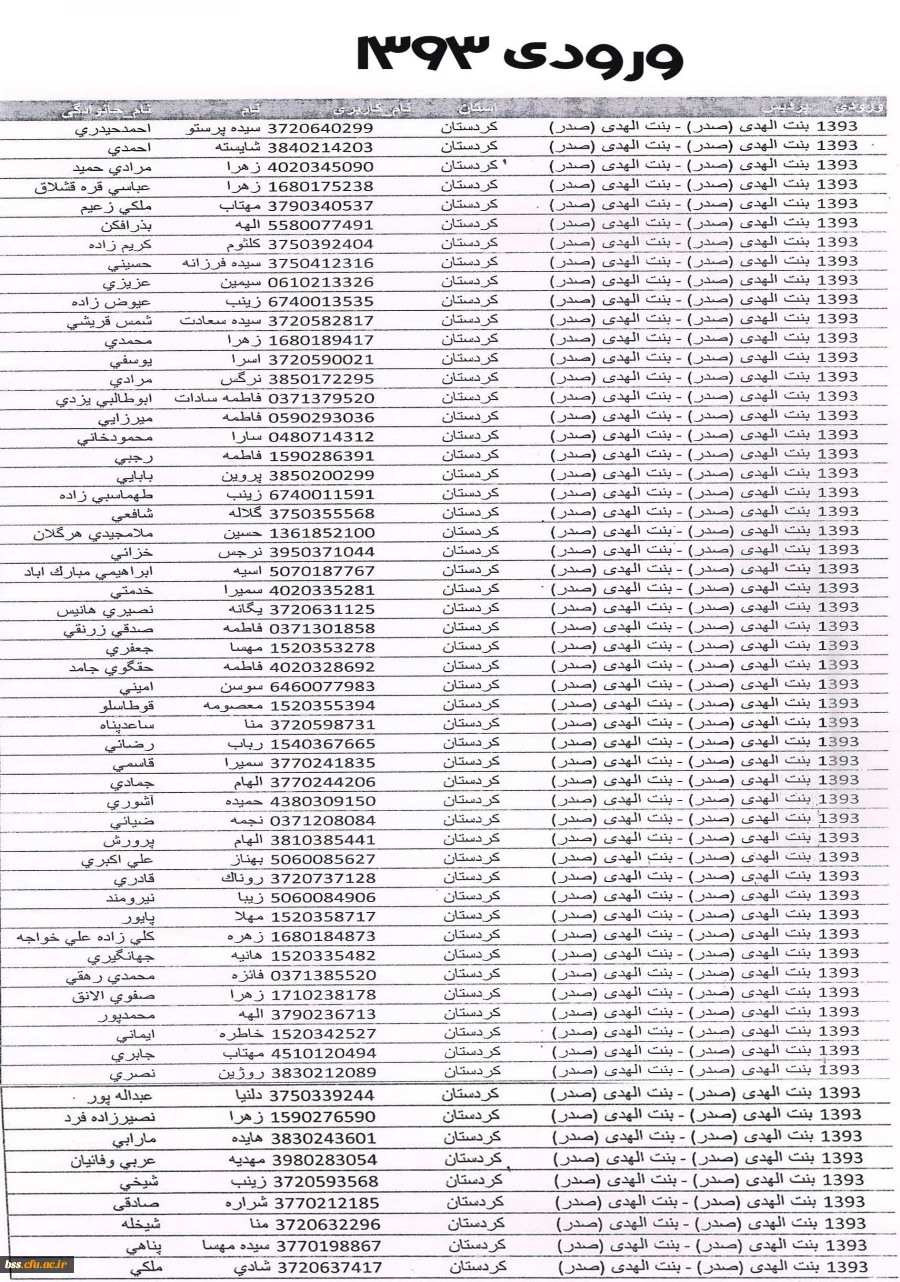 ورودی ۱۳۹۳
ورودي پرديس استان نام_كاربري نام نام_خانوادگي
1393 بنت الهدی (صدر) - بنت الهدی (صدر) كردستان 3720640299 سيده پرستو احمدحيدري
1393 بنت الهدی (صدر) - بنت الهدی (صدر) كردستان 3840214203 شايسته احمدي
1393 بنت الهدی (صدر) - بنت الهدی (صدر) كردستان 4020345090 زهرا مرادي حميد
1393 بنت الهدی (صدر) - بنت الهدی (صدر) كردستان 1680175238 زهرا عباسي قره قشلاق
1393 بنت الهدی (صدر) - بنت الهدی (صدر) كردستان 3790340537 مهتاب ملكي زعيم
1393 بنت الهدی (صدر) - بنت الهدی (صدر) كردستان 5580077491 الهه بذرافكن
1393 بنت الهدی (صدر) - بنت الهدی (صدر) كردستان 3750392404 كلثوم كريم زاده
1393 بنت الهدی (صدر) - بنت الهدی (صدر) كردستان 3750412316 سيده فرزانه حسيني
1393 بنت الهدی (صدر) - بنت الهدی (صدر) كردستان 0610213326 سيمين عزيزي
1393 بنت الهدی (صدر) - بنت الهدی (صدر) كردستان 6740013535 زينب عيوض زاده
1393 بنت الهدی (صدر) - بنت الهدی (صدر) كردستان 3720582817 سيده سعادت شمس قريشي
1393 بنت الهدی (صدر) - بنت الهدی (صدر) كردستان 1680189417 زهرا محمدي
1393 بنت الهدی (صدر) - بنت الهدی (صدر) كردستان 3720590021 اسرا يوسفي
1393 بنت الهدی (صدر) - بنت الهدی (صدر) كردستان 3850172295 نرگس مرادي
1393 بنت الهدی (صدر) - بنت الهدی (صدر) كردستان 0371379520 فاطمه سادات ابوطالبي يزدي
1393 بنت الهدی (صدر) - بنت الهدی (صدر) كردستان 0590293036 فاطمه ميرزايي
1393 بنت الهدی (صدر) - بنت الهدی (صدر) كردستان 0480714312 سارا محمودخاني
1393 بنت الهدی (صدر) - بنت الهدی (صدر) كردستان 1590286391 فاطمه رجبي
1393 بنت الهدی (صدر) - بنت الهدی (صدر) كردستان 3850200299 پروين بابايي
1393 بنت الهدی (صدر) - بنت الهدی (صدر) كردستان 6740011591 زينب طهماسبي زاده
1393 بنت الهدی (صدر) - بنت الهدی (صدر) كردستان 3750355568 گلاله شافعي
1393 بنت الهدی (صدر) - بنت الهدی (صدر) كردستان 1361852100 حسين ملامجيدي هرگلان
1393 بنت الهدی (صدر) - بنت الهدی (صدر) كردستان 3950371044 نرجس خزائي
1393 بنت الهدی (صدر) - بنت الهدی (صدر) كردستان 5070187767 اسيه ابراهيمي مبارك اباد
1393 بنت الهدی (صدر) - بنت الهدی (صدر) كردستان 4020335281 سميرا خدمتي
1393 بنت الهدی (صدر) - بنت الهدی (صدر) كردستان 3720631125 يگانه نصيري هانيس
1393 بنت الهدی (صدر) - بنت الهدی (صدر) كردستان 0371301858 فاطمه صدقي زرنقي
1393 بنت الهدی (صدر) - بنت الهدی (صدر) كردستان 1520353278 مهسا جعفري
1393 بنت الهدی (صدر) - بنت الهدی (صدر) كردستان 4020328692 فاطمه حقگوي جامد
1393 بنت الهدی (صدر) - بنت الهدی (صدر) كردستان 6460077983 سوسن اميني
1393 بنت الهدی (صدر) - بنت الهدی (صدر) كردستان 1520355394 معصومه قوطاسلو
1393 بنت الهدی (صدر) - بنت الهدی (صدر) كردستان 3720598731 منا ساعدپناه
1393 بنت الهدی (صدر) - بنت الهدی (صدر) كردستان 1540367665 رباب رضائي
1393 بنت الهدی (صدر) - بنت الهدی (صدر) كردستان 3770241835 سميرا قاسمي
1393 بنت الهدی (صدر) - بنت الهدی (صدر) كردستان 3770244206 الهام جمادي
1393 بنت الهدی (صدر) - بنت الهدی (صدر) كردستان 4380309150 حميده آشوري
1393 بنت الهدی (صدر) - بنت الهدی (صدر) كردستان 0371208084 نجمه ضيائي
1393 بنت الهدی (صدر) - بنت الهدی (صدر) كردستان 3810385441 الهام پرورش
1393 بنت الهدی (صدر) - بنت الهدی (صدر) كردستان 5060085627 بهناز علي اكبري
1393 بنت الهدی (صدر) - بنت الهدی (صدر) كردستان 3720737128 روناك قادري
1393 بنت الهدی (صدر) - بنت الهدی (صدر) كردستان 5060084906 زيبا نيرومند
1393 بنت الهدی (صدر) - بنت الهدی (صدر) كردستان 1520358717 مهلا پايور
1393 بنت الهدی (صدر) - بنت الهدی (صدر) كردستان 1680184873 زهره كلي زاده علي خواجه
1393 بنت الهدی (صدر) - بنت الهدی (صدر) كردستان 1520335482 هانيه جهانگيري
1393 بنت الهدی (صدر) - بنت الهدی (صدر) كردستان 0371385520 فائزه محمدي رهقي
1393 بنت الهدی (صدر) - بنت الهدی (صدر) كردستان 1710238178 زهرا صفوي الانق
1393 بنت الهدی (صدر) - بنت الهدی (صدر) كردستان 3790236713 الهه محمدپور
1393 بنت الهدی (صدر) - بنت الهدی (صدر) كردستان 1520342527 خاطره ايماني
1393 بنت الهدی (صدر) - بنت الهدی (صدر) كردستان 4510120494 مهتاب جابري
1393 بنت الهدی (صدر) - بنت الهدی (صدر) كردستان 3830212089 روژين نصري
1393 بنت الهدی (صدر) - بنت الهدی (صدر) كردستان 3750339244 دلنيا عبداله پور
1393 بنت الهدی (صدر) - بنت الهدی (صدر) كردستان 1590276590 زهرا نصيرزاده فرد
1393 بنت الهدی (صدر) - بنت الهدی (صدر) كردستان 3830243601 هايده مارابي
1393 بنت الهدی (صدر) - بنت الهدی (صدر) كردستان 3980283054 مهديه عربي وفائيان
1393 بنت الهدی (صدر) - بنت الهدی (صدر) كردستان 3720593568 زينب شيخي
1393 بنت الهدی (صدر) - بنت الهدی (صدر) كردستان 3770212185 شراره صادقی
1393 بنت الهدی (صدر) - بنت الهدی (صدر) كردستان 3720632296 منا شيخله
1393 بنت الهدی (صدر) - بنت الهدی (صدر) كردستان 3770198867 سيده مهسا پناهي
1393 بنت الهدی (صدر) - بنت الهدی (صدر) كردستان 3720637417 شادي ملكي
bss.cfu.ac.ir